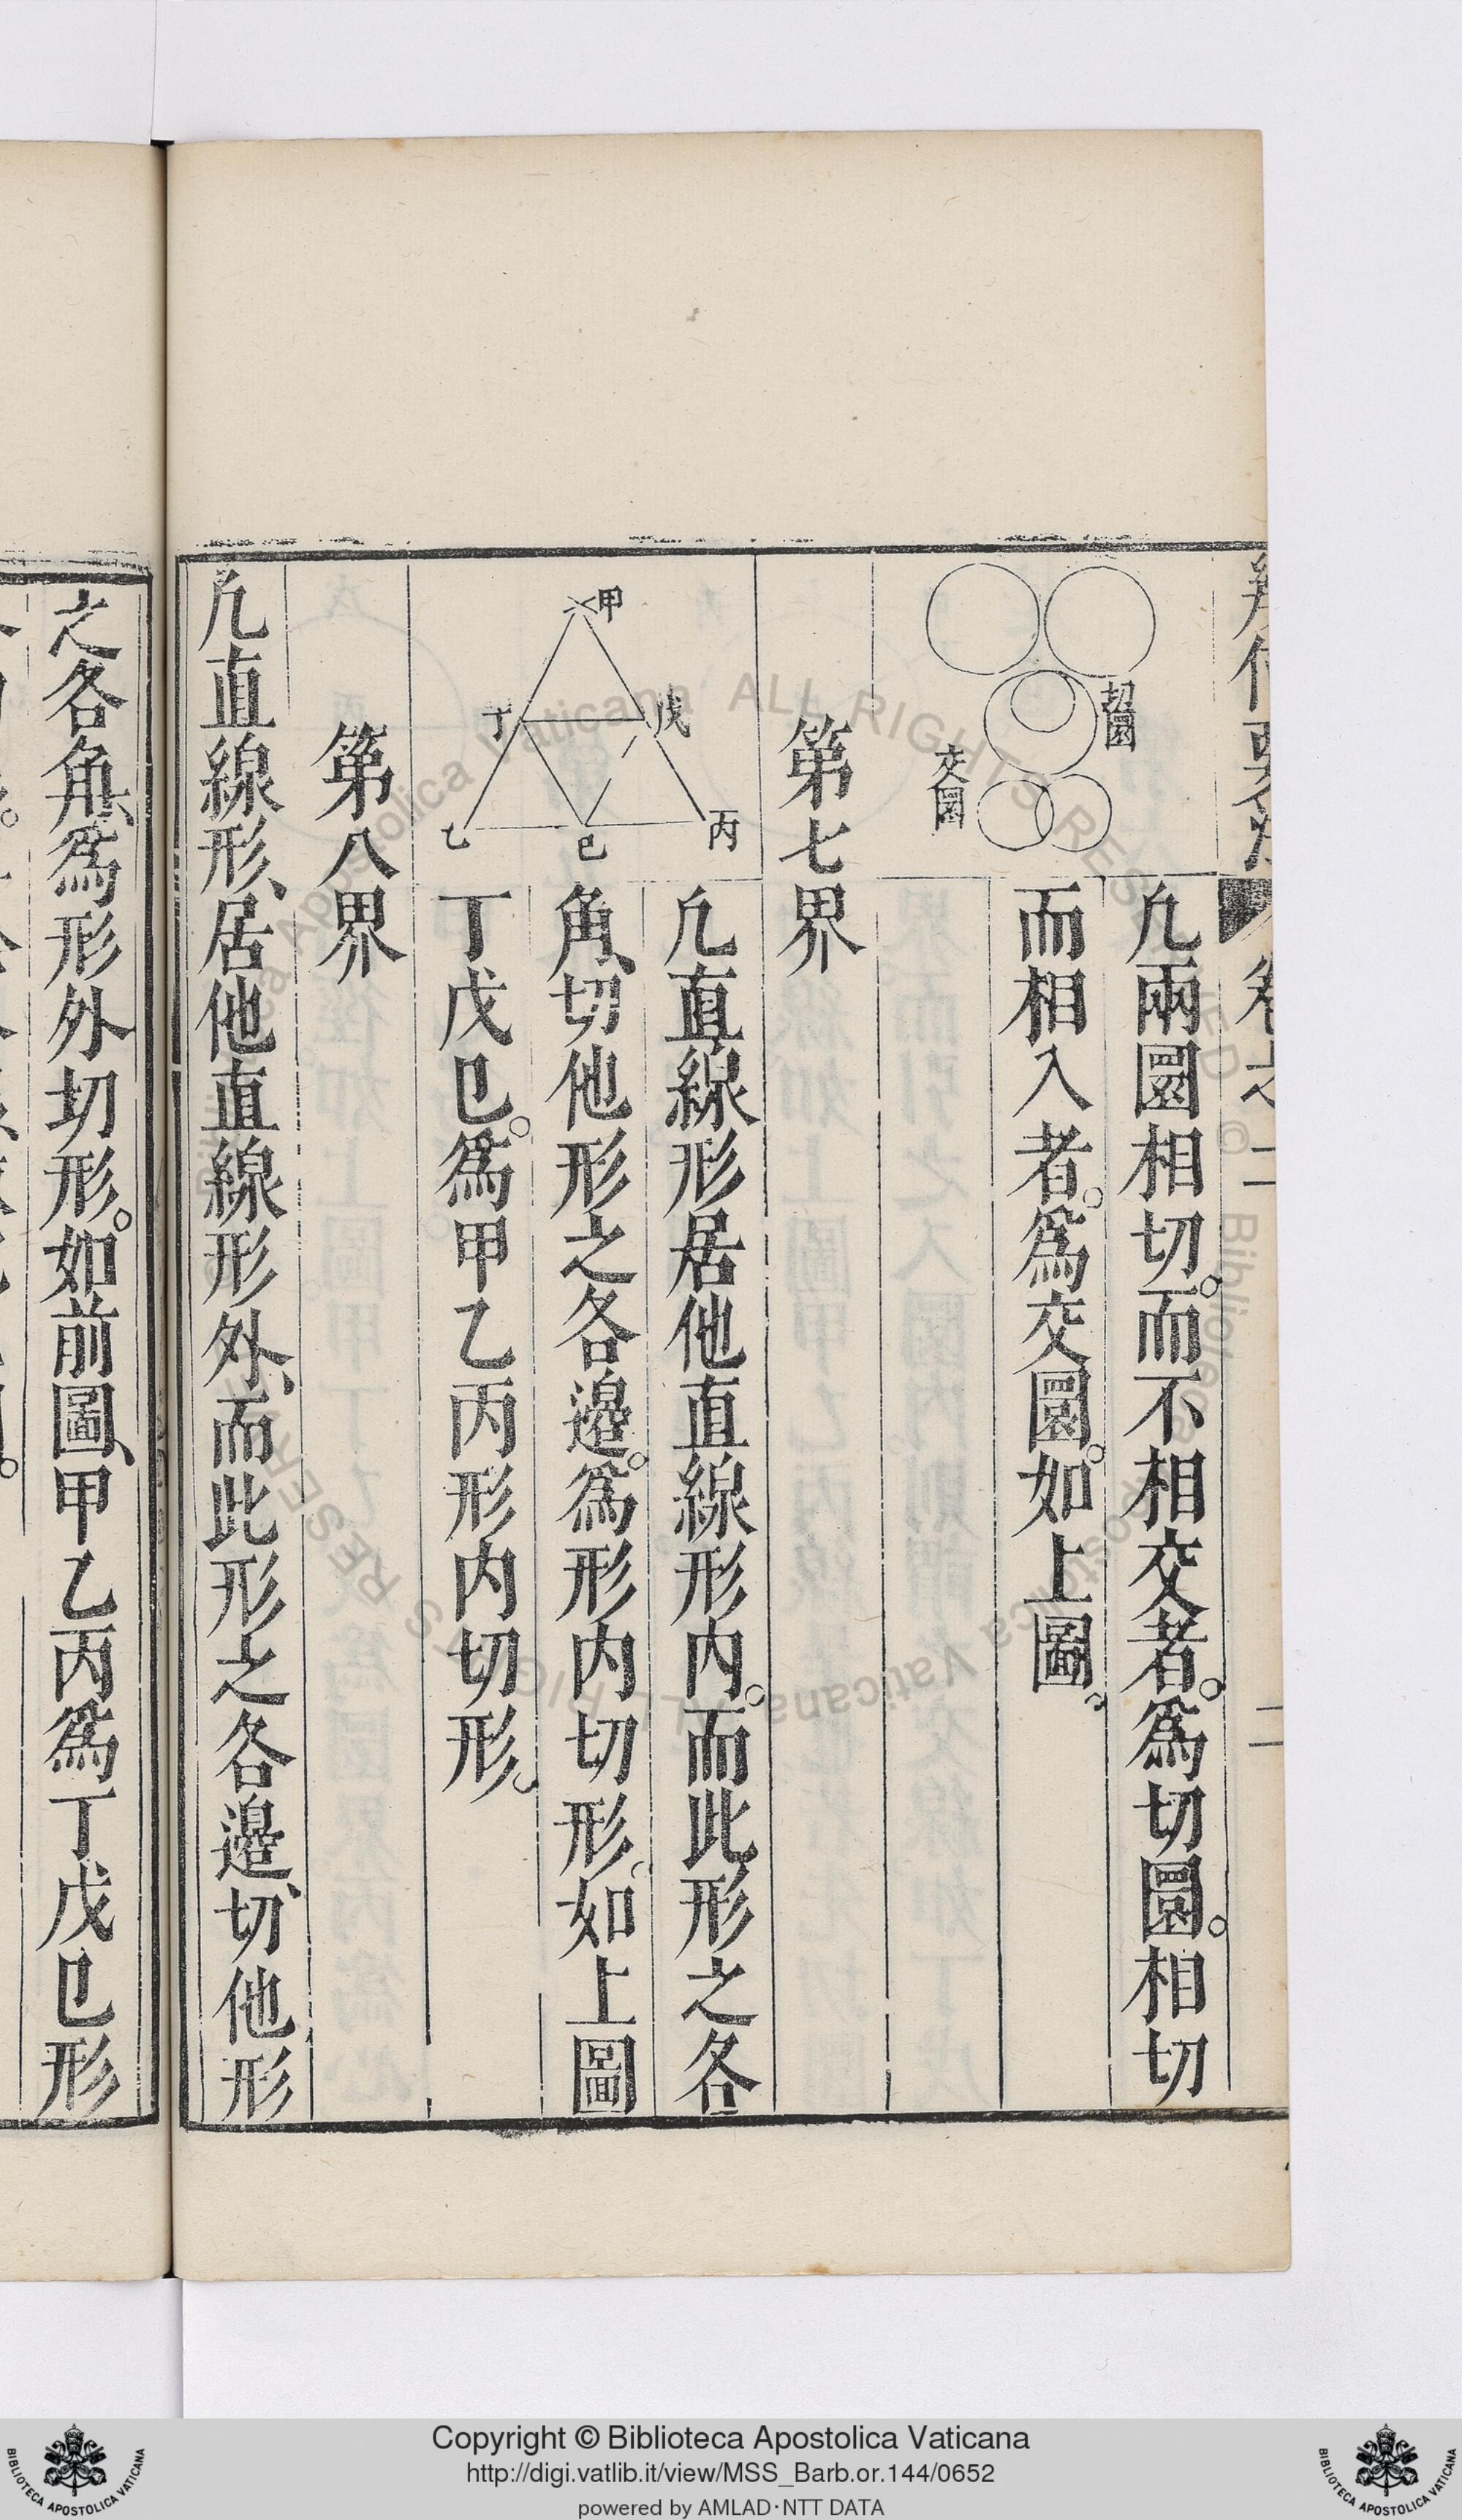 卷之二
二
凡兩圜相切。而不相交者。爲切圜。相切
而相入者。爲交圜。如上圖。
切圜
交圜
第七界
凡直線形居他直線形内。而此形之各
角、切他形之各邉。爲形内切形。如上圖
丁戊巳。爲甲乙丙形内切形。
甲
丁
戊
乙
巳
丙
第八界
凡直線形、居他直線形外、而此形之各邉、切他形
之各角、爲形外切形。如前圖、甲乙丙爲丁戊巳形
Copyright © Biblioteca Apostolica Vaticana
http://digi.vatlib.it/view/MSS_Barb.or.144/0652
powered by AMLAD·NTT DATA
BIBLIOTECA APOSTOLICA VATICANA
BIBLIOTECA APOSTOLICA VATICANA